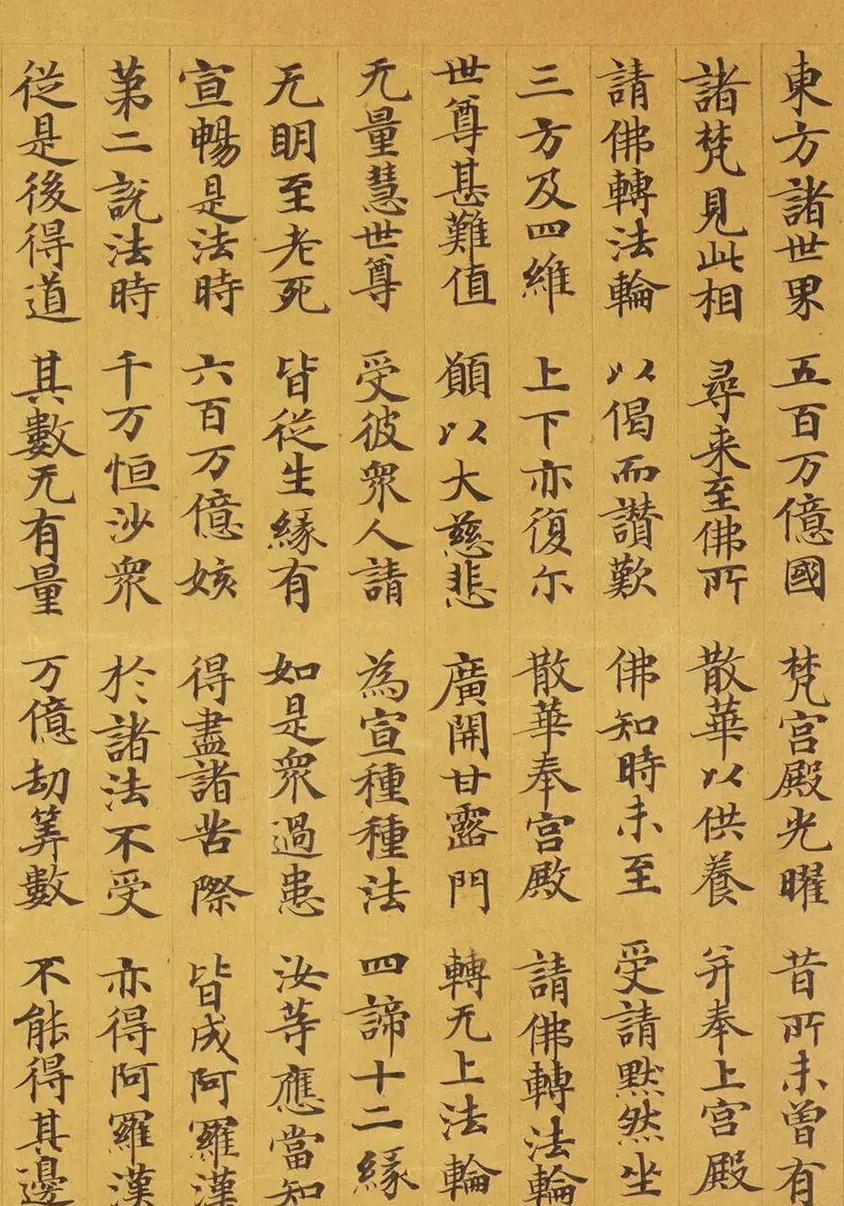 東方諸世界 五百万億國 梵宮殿光曜 昔所未曾有
諸梵見此相 尋来至佛所 散華以供養 并奉上宮殿
請佛轉法輪 以偈而讃歎 佛知時未至 受請黙然坐
三方及四維 上下亦復尓 散華奉宮殿 請佛轉法輪
世尊甚難值 願以大慈悲 廣開甘露門 轉无上法輪
无量慧世尊 受彼衆人請 為宣種種法 四諦十二緣
无明至老死 皆從生緣有 如是衆過患 汝等應當知
宣暢是法時 六百万億姟 得盡諸苦際 皆成阿羅漢
第二說法時 千万恒沙衆 於諸法不受 亦得阿羅漢
從是後得道 其數无有量 万億劫筭數 不能得其邊